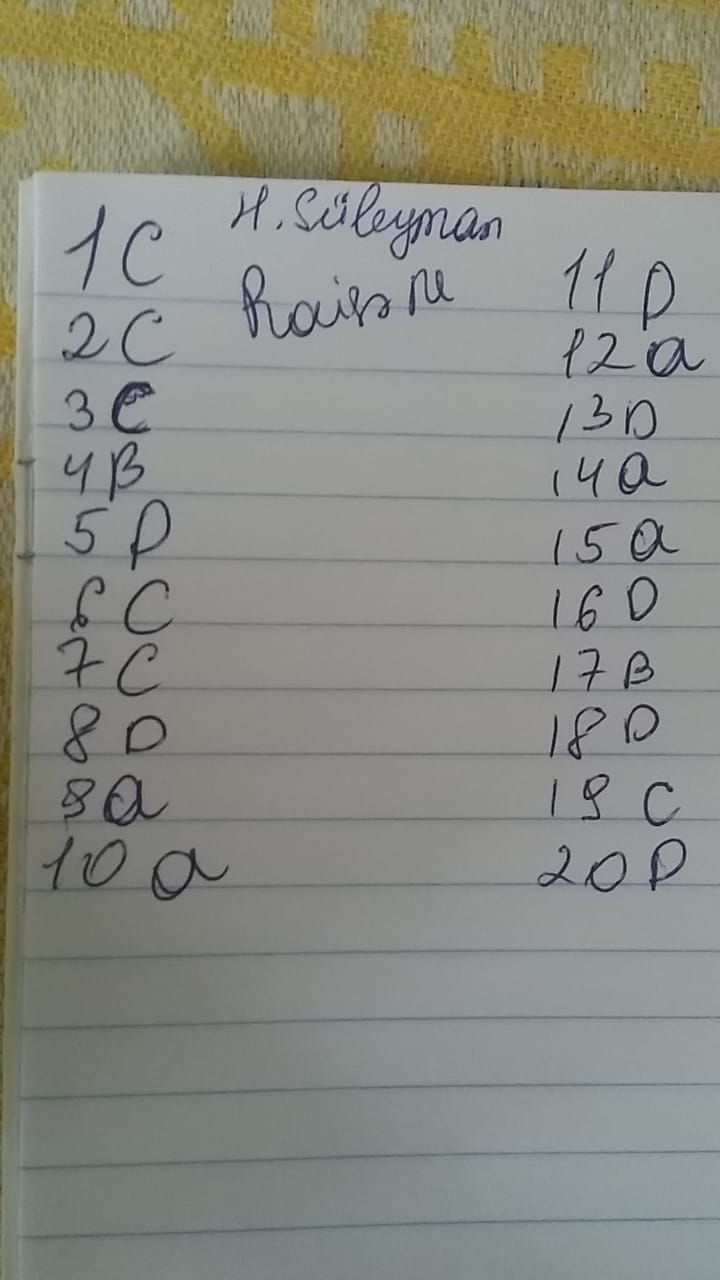 H. Süleyman
1 C
2 C
3 C
4 B
5 D
6 C
7 C
8 D
9 a
10 a
11 D
12 a
13 D
14 a
15 a
16 D
17 B
18 D
19 C
20 D